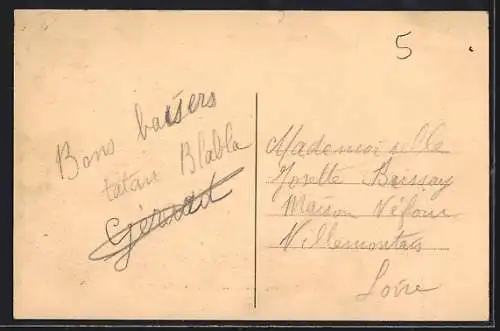 5
Bons baisers
tatan Blabla
Gérard
Mademoiselle
Josette Buissay
Maison Véfour
Villemontais
Loire